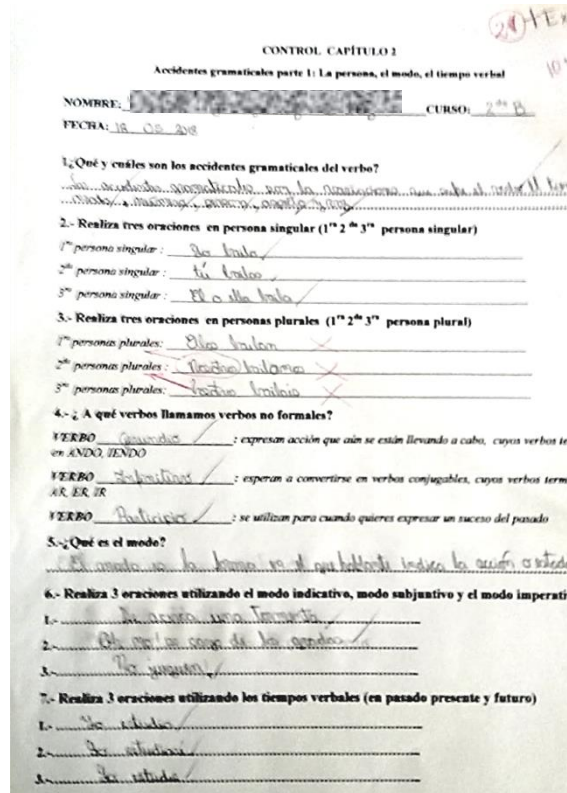 21 + Ex
10
CONTROL CAPÍTULO 2
Accidentes gramaticales parte 1: La persona, el modo, el tiempo verbal
NOMBRE: CURSO: 2do B
FECHA: 18 05 2018
1¿Qué y cuáles son los accidentes gramaticales del verbo?
los accidentes gramaticales son la que sufre el verbo El
modo, número, persona, aspecto y voz
2.- Realiza tres oraciones en persona singular (1ra 2da 3ra persona singular)
1ra persona singular : Yo bailo
2da persona singular : tú bailas
3ra persona singular : El o ella baila
3.- Realiza tres oraciones en personas plurales (1ra 2da 3ra persona plural)
1ra personas plurales: Ellos bailan
2da personas plurales: Nosotros bailamos
3ra personas plurales: bailais
4.- ¿ A qué verbos llamamos verbos no formales?
VERBO Gerundio : expresan acción que aún se están llevando a cabo, cuyos verbos te
en ANDO, IENDO
VERBO Infinitivo : esperan a convertirse en verbos conjugables, cuyos verbos term
AR, ER, IR
VERBO Participio : se utilizan para cuando quieres expresar un suceso del pasado
5.-¿Qué es el modo?
El modo es la forma en el que hablante indica la acción o estado
6.- Realiza 3 oraciones utilizando el modo indicativo, modo subjuntivo y el modo imperati
1.- una Tormenta
2.- Oh no! se cayo de las gradas
3.- No jueguen!
7.- Realiza 3 oraciones utilizando los tiempos verbales (en pasado presente y futuro)
1.- Yo estudio
2.- Yo estudiaré
3.- Yo estudié